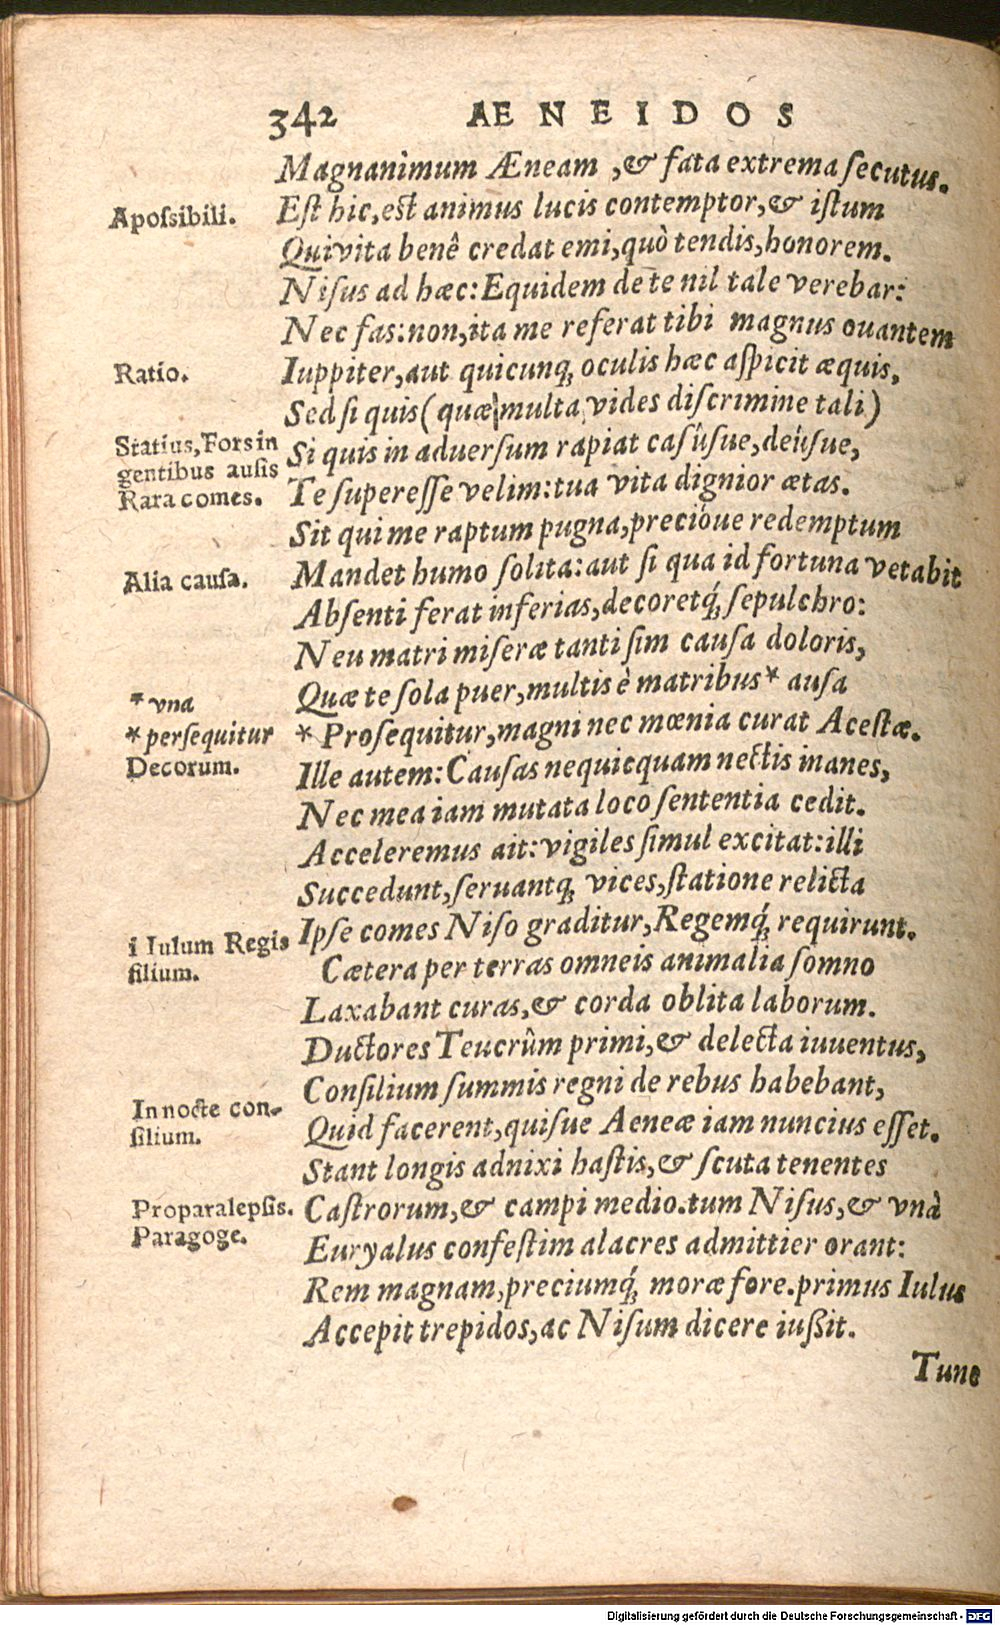 342 AENEIDOS
Magnanimum Æneam, & fata extrema ſecutus.
Apoſsibili.
Eſt hic, eſt animus lucis contemptor, & iſtum
Qui vita benê credat emi, quò tendis, honorem.
Niſus ad hæc: Equidem de te nil tale verebar:
Nec fas: non, ita me referat tibi magnus ouantem
Ratio.
Iuppiter, aut quicunq; oculis hæc aſpicit æquis,
Sed ſi quis (quæ multa vides diſcrimine tali)
Statius, Fors in
gentibus auſis
Rara comes.
Si quis in aduerſum rapiat caſúſue, deúſue,
Te ſupereſſe velim: tua vita dignior ætas.
Sit qui me raptum pugna, precióue redemptum
Alia cauſa.
Mandet humo ſolita: aut ſi qua id fortuna vetabit
Abſenti ferat inferias, decoretq́; ſepulchro:
Neu matri miſeræ tanti ſim cauſa doloris,
* vna
Quæ te ſola puer, multis è matribus * auſa
* perſequitur
* Proſequitur, magni nec mœnia curat Aceſtæ.
Decorum.
Ille autem: Cauſas nequicquam nectis inanes,
Nec mea iam mutata loco ſententia cedit.
Acceleremus ait: vigiles ſimul excitat: illi
Succedunt, ſeruantq; vices, ſtatione relicta
i Iulum Regis
filium.
Ipſe comes Niſo graditur, Regemq́; requirunt.
Cætera per terras omneis animalia ſomno
Laxabant curas, & corda oblita laborum.
Ductores Teucrûm primi, & delecta iuuentus,
In nocte con-
ſilium.
Conſilium ſummis regni de rebus habebant,
Quid facerent, quiſue Aeneæ iam nuncius eſſet.
Stant longis adnixi haſtis, & ſcuta tenentes
Proparalepſis.
Paragoge.
Caſtrorum, & campi medio. tum Niſus, & vnà
Euryalus confeſtim alacres admittier orant:
Rem magnam, preciumq́; moræ fore. primus Iulus
Accepit trepidos, ac Niſum dicere iußit.
Tunc
Digitalisierung gefördert durch die Deutsche Forschungsgemeinschaft - DFG